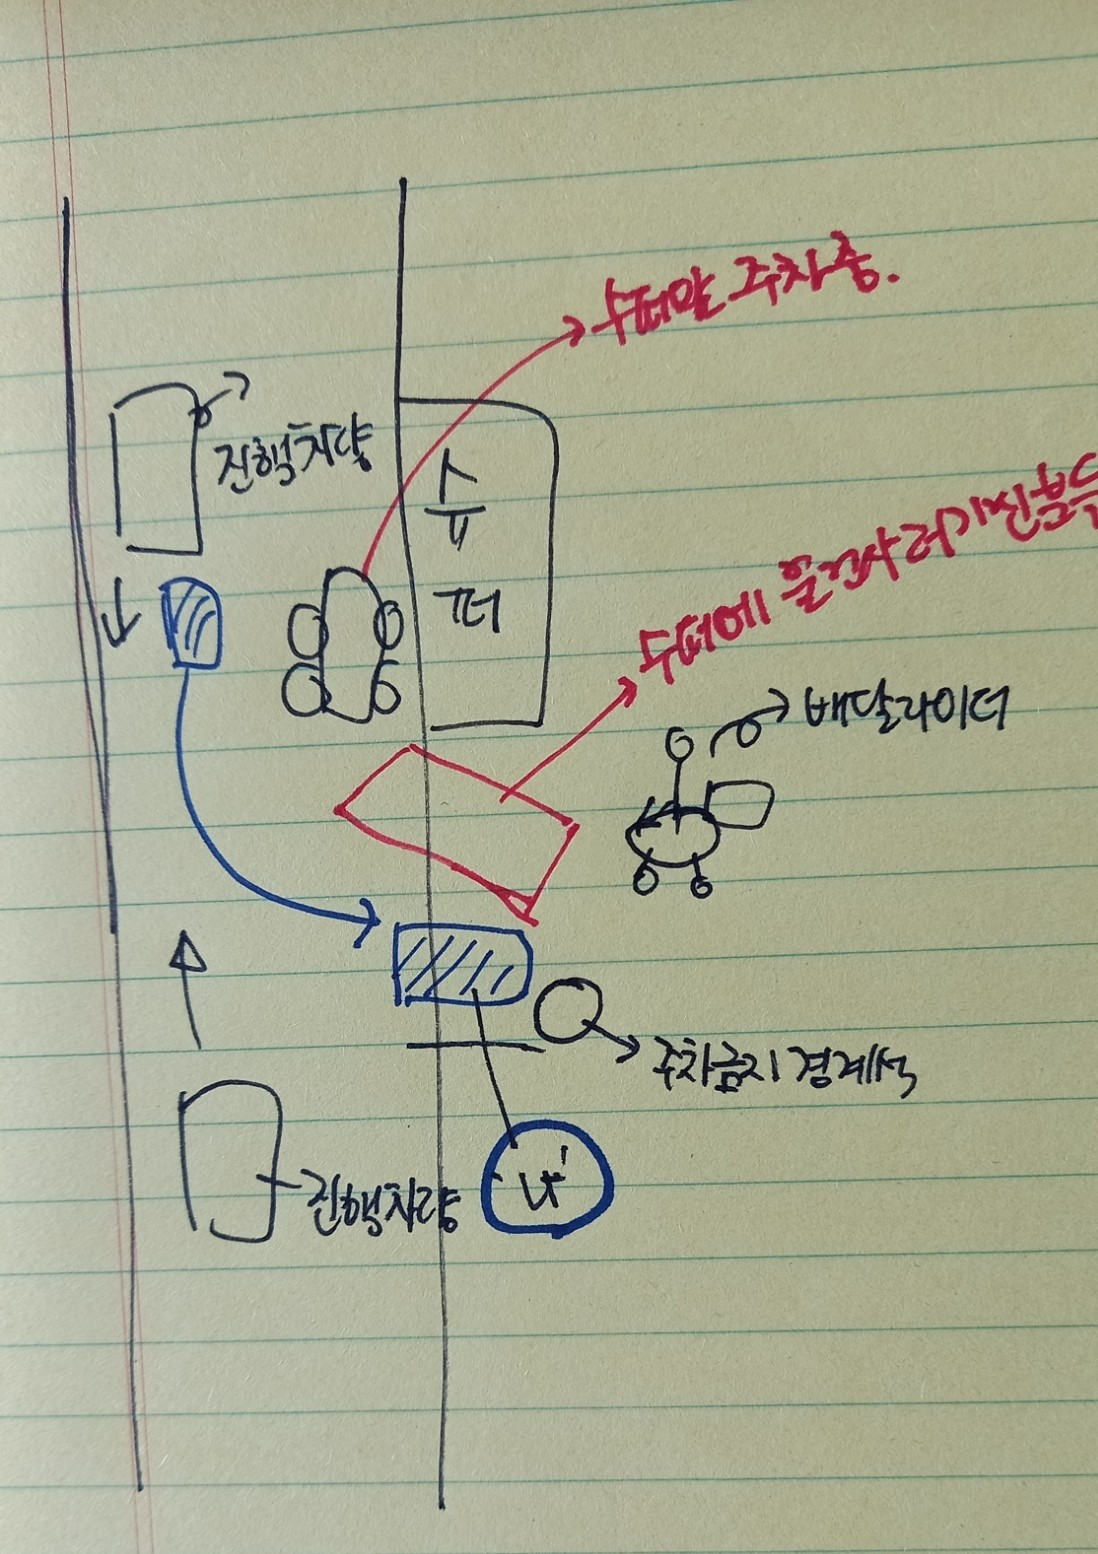 수퍼앞 주차중.
진행차량
슈퍼
수퍼에 물건사러가신분
배달라이더
주차금지 경계석
진행차량
나